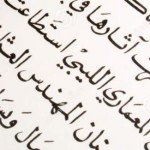 آثارها في
المعماري الليبي استطاعت
نان المهندس العث
ال وسا